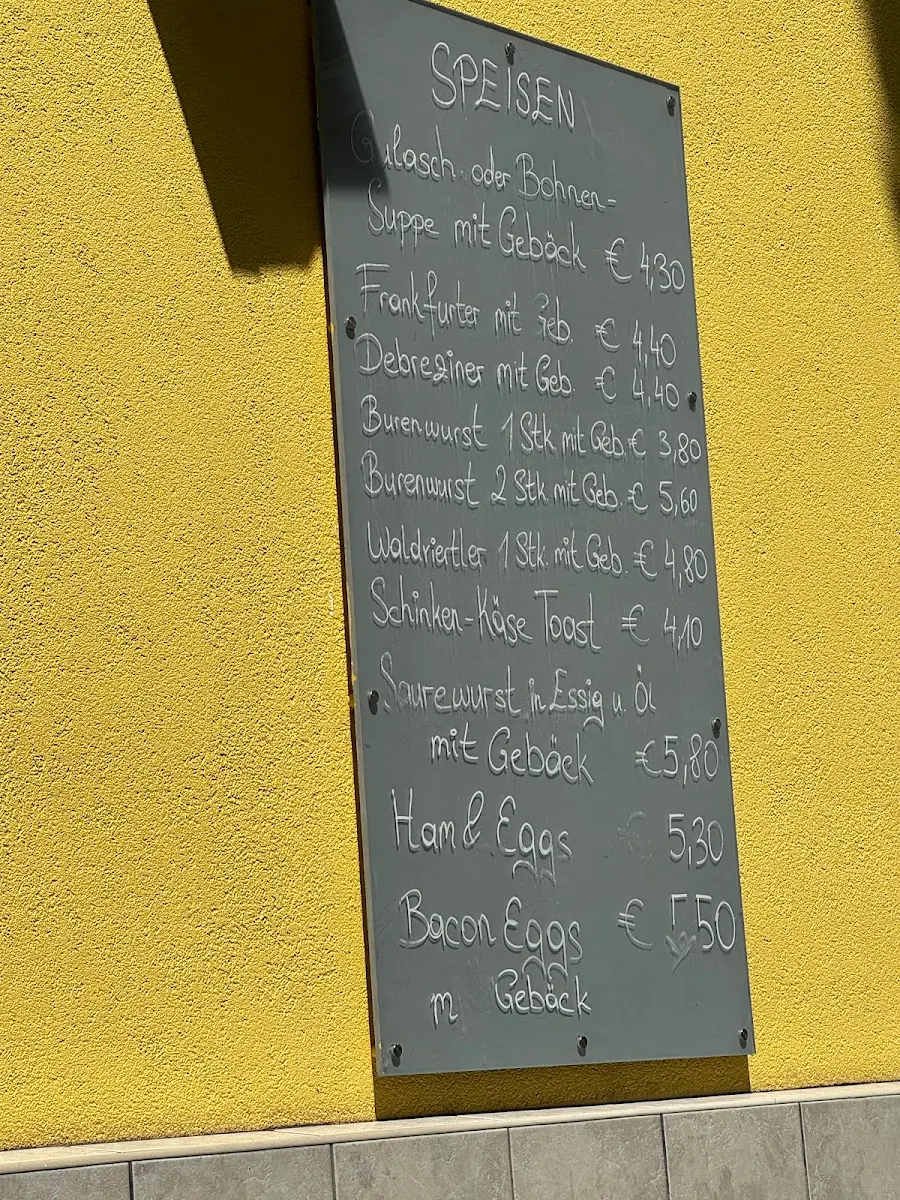 SPEISEN
Gulasch oder Bohnen-
Suppe mit Gebäck € 4,30
Frankfurter mit Geb. € 4,40
Debreziner mit Geb. € 4,40
Burenwurst 1 Stk mit Geb. € 3,80
Burenwurst 2 Stk mit Geb. € 5,60
Waldviertler 1 Stk. mit Geb. € 4,80
Schinken-Käse Toast € 4,10
Saurewurst in Essig u. Öl
mit Gebäck € 5,80
Ham & Eggs € 5,30
Bacon Eggs € 5,50
m Gebäck